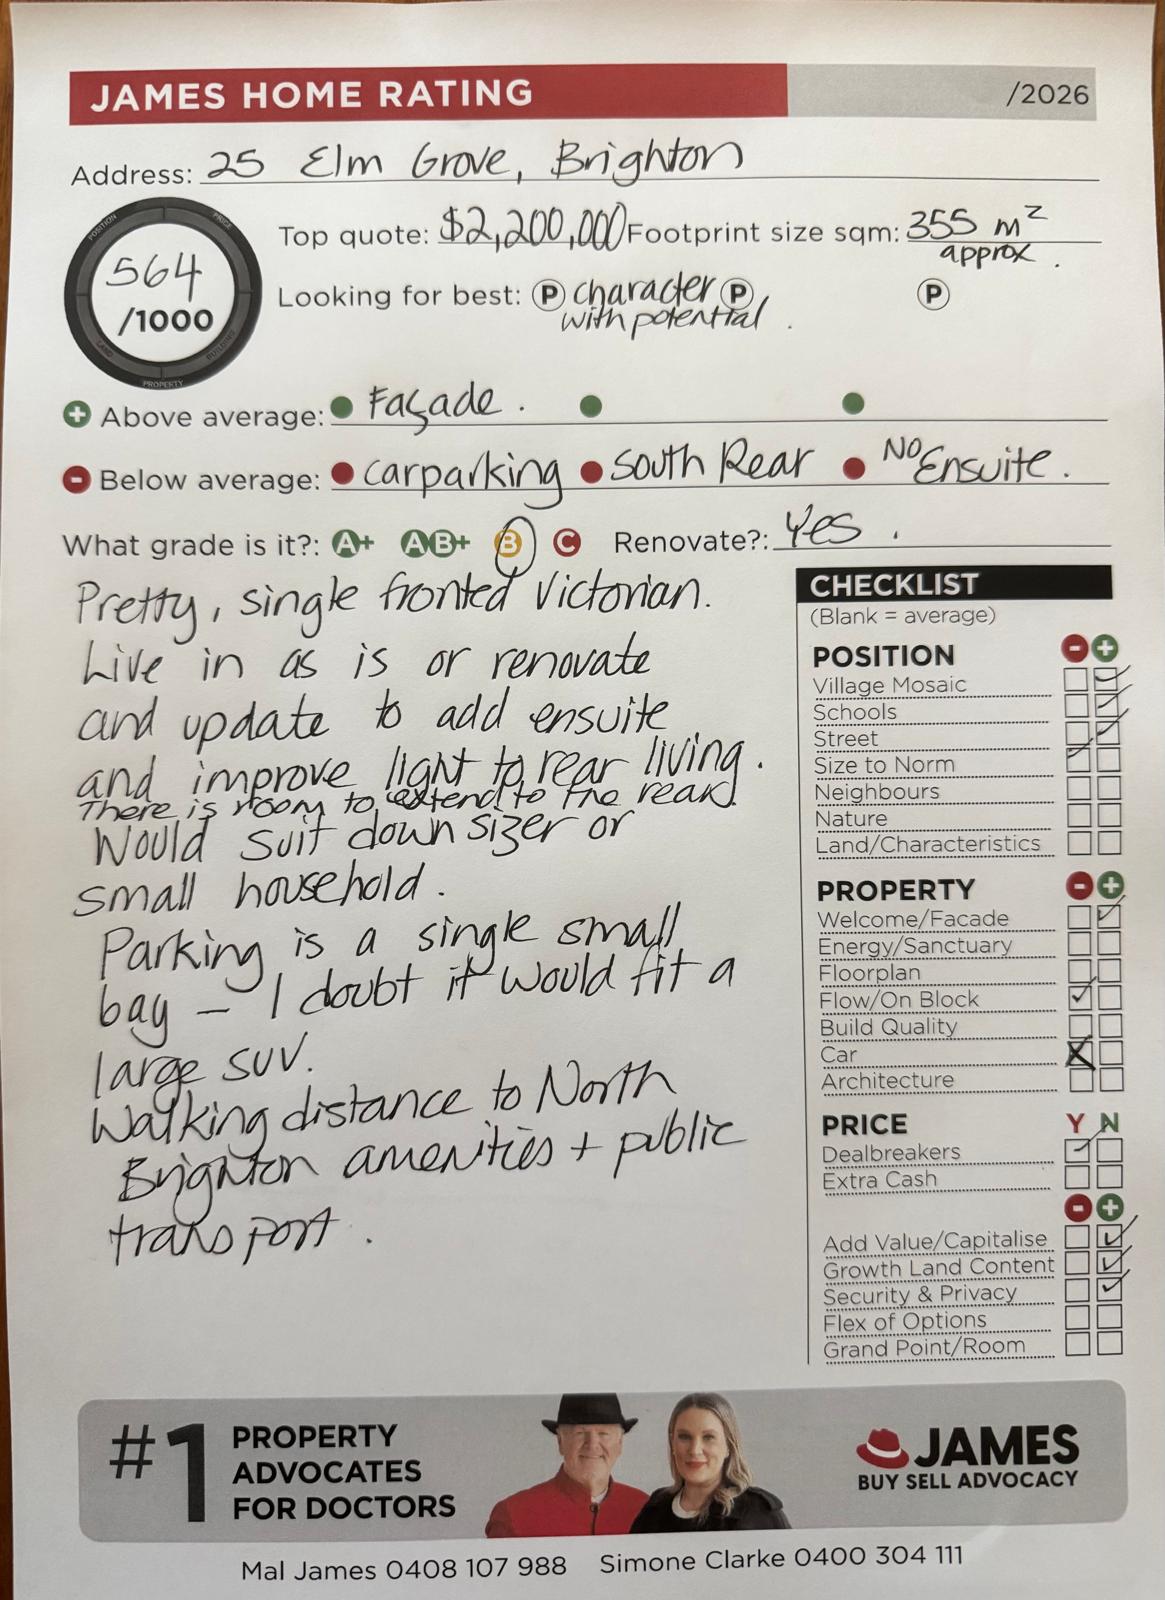 JAMES HOME RATING /2026
Address: 25 Elm Grove, Brighton
POSITION PRICE
564
/1000
LAND BUILDING
PROPERTY
Top quote: $2,200,000 Footprint size sqm: 355 m²
approx.
Looking for best: P character P P
with potential.
+ Above average: Façade.
- Below average: carparking South Rear No Ensuite.
What grade is it?: A+ AB+ B C Renovate?: Yes.
Pretty, single fronted Victorian.
Live in as is or renovate
and update to add ensuite
and improve light to rear living.
There is room to extend to the rear.
Would suit downsizer or
small household.
Parking is a single small
bay – I doubt it would fit a
large SUV.
Walking distance to North
Brighton amenities + public
transport.
CHECKLIST
(Blank = average)
POSITION - +
Village Mosaic
Schools
Street
Size to Norm
Neighbours
Nature
Land/Characteristics
PROPERTY - +
Welcome/Facade
Energy/Sanctuary
Floorplan
Flow/On Block
Build Quality
Car
Architecture
PRICE Y N
Dealbreakers
Extra Cash
- +
Add Value/Capitalise
Growth Land Content
Security & Privacy
Flex of Options
Grand Point/Room
#1 PROPERTY
ADVOCATES
FOR DOCTORS
JAMES
BUY SELL ADVOCACY
Mal James 0408 107 988 Simone Clarke 0400 304 111